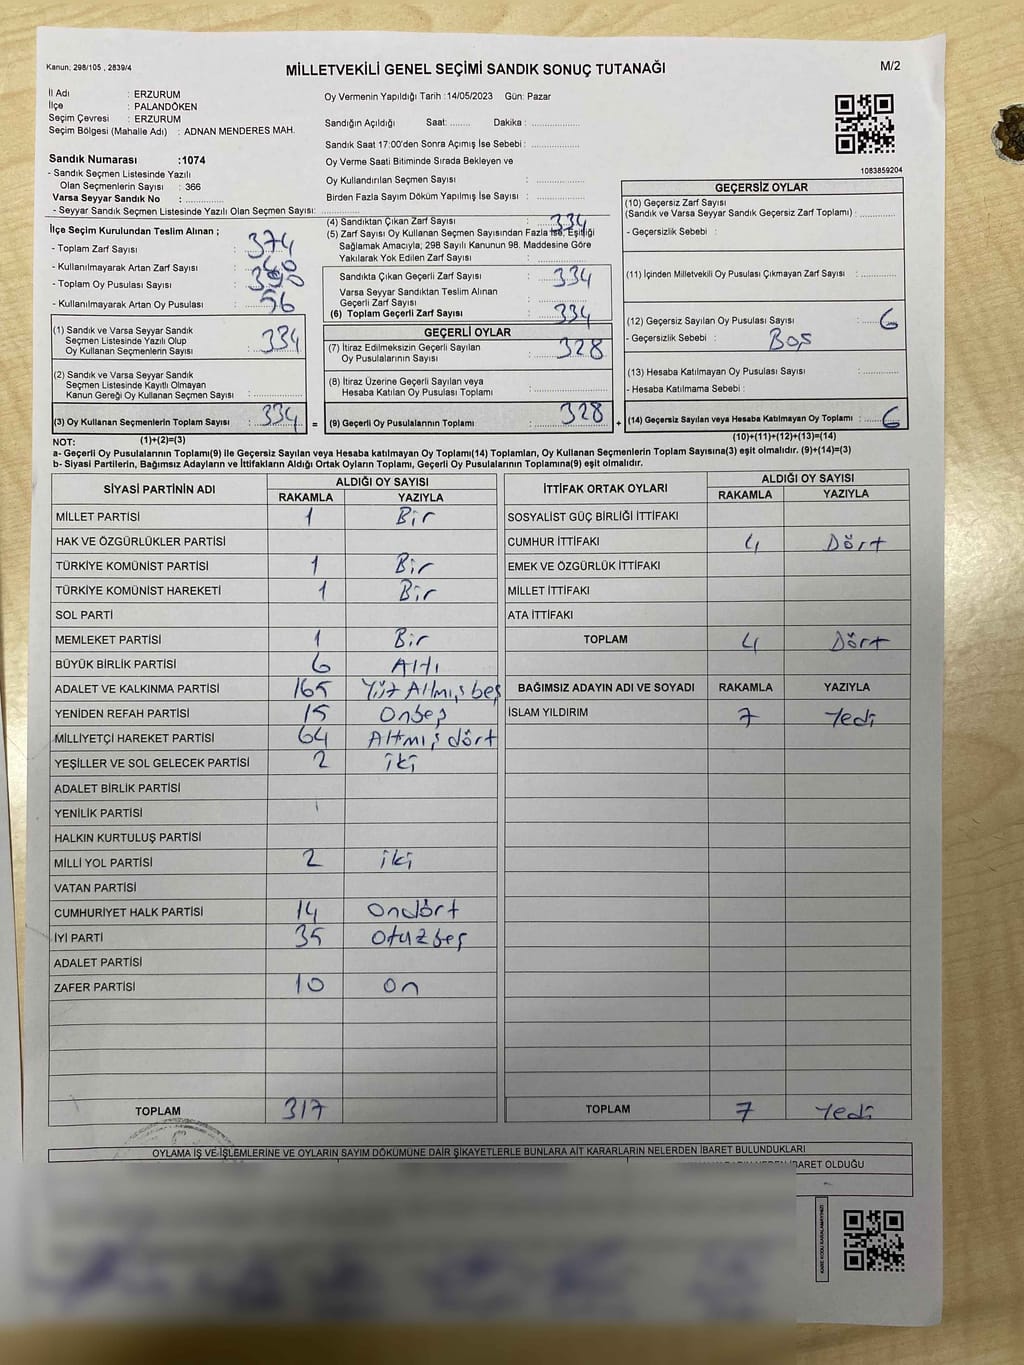 Kanun; 298/105 , 2839/4
MİLLETVEKİLİ GENEL SEÇİMİ SANDIK SONUÇ TUTANAĞI
M/2
İl Adı : ERZURUM
İlçe : PALANDÖKEN
Seçim Çevresi : ERZURUM
Seçim Bölgesi (Mahalle Adı) : ADNAN MENDERES MAH.
Sandık Numarası :1074
- Sandık Seçmen Listesinde Yazılı
Olan Seçmenlerin Sayısı : 366
Varsa Seyyar Sandık No : ..............
- Seyyar Sandık Seçmen Listesinde Yazılı Olan Seçmen Sayısı: ..............
Oy Vermenin Yapıldığı Tarih :14/05/2023 Gün: Pazar
Sandığın Açıldığı Saat: ........ Dakika : ..............
Sandık Saat 17:00'den Sonra Açımış İse Sebebi : ..............
Oy Verme Saati Bitiminde Sırada Bekleyen ve
Oy Kullandırılan Seçmen Sayısı : ..............
Birden Fazla Sayım Döküm Yapılmış İse Sayısı : ..............
1083859204
İlçe Seçim Kurulundan Teslim Alınan ;
- Toplam Zarf Sayısı : 374
- Kullanılmayarak Artan Zarf Sayısı : 40
- Toplam Oy Pusulası Sayısı : 390
- Kullanılmayarak Artan Oy Pusulası : 56
(1) Sandık ve Varsa Seyyar Sandık
Seçmen Listesinde Yazılı Olup
Oy Kullanan Seçmenlerin Sayısı : 334
(2) Sandık ve Varsa Seyyar Sandık
Seçmen Listesinde Kayıtlı Olmayan
Kanun Gereği Oy Kullanan Seçmen Sayısı : ..............
(3) Oy Kullanan Seçmenlerin Toplam Sayısı : 334 =
(4) Sandıktan Çıkan Zarf Sayısı : 334
(5) Zarf Sayısı Oy Kullanan Seçmen Sayısından Fazla ise, Eşitliği
Sağlamak Amacıyla; 298 Sayılı Kanunun 98. Maddesine Göre
Yakılarak Yok Edilen Zarf Sayısı : ..............
Sandıkta Çıkan Geçerli Zarf Sayısı : 334
Varsa Seyyar Sandıktan Teslim Alınan
Geçerli Zarf Sayısı : ..............
(6) Toplam Geçerli Zarf Sayısı : 334
GEÇERLİ OYLAR
(7) İtiraz Edilmeksizin Geçerli Sayılan
Oy Pusulalarının Sayısı : 328
(8) İtiraz Üzerine Geçerli Sayılan veya
Hesaba Katılan Oy Pusulası Toplamı : ..............
(9) Geçerli Oy Pusulalarının Toplamı : 328 +
GEÇERSİZ OYLAR
(10) Geçersiz Zarf Sayısı
(Sandık ve Varsa Seyyar Sandık Geçersiz Zarf Toplamı) : ..............
- Geçersizlik Sebebi :
(11) İçinden Milletvekili Oy Pusulası Çıkmayan Zarf Sayısı : ..............
(12) Geçersiz Sayılan Oy Pusulası Sayısı : 6
- Geçersizlik Sebebi : Boş
(13) Hesaba Katılmayan Oy Pusulası Sayısı : ..............
- Hesaba Katılmama Sebebi :
(14) Geçersiz Sayılan veya Hesaba Katılmayan Oy Toplamı : 6
NOT: (1)+(2)=(3) (10)+(11)+(12)+(13)=(14)
a- Geçerli Oy Pusulalarının Toplamı(9) ile Geçersiz Sayılan veya Hesaba katılmayan Oy Toplamı(14) Toplamları, Oy Kullanan Seçmenlerin Toplam Sayısına(3) eşit olmalıdır. (9)+(14)=(3)
b- Siyasi Partilerin, Bağımsız Adayların ve İttifakların Aldığı Ortak Oyların Toplamı, Geçerli Oy Pusulalarının Toplamına(9) eşit olmalıdır.
SİYASİ PARTİNİN ADI ALDIĞI OY SAYISI
RAKAMLA YAZIYLA
MİLLET PARTİSİ 1 Bir
HAK VE ÖZGÜRLÜKLER PARTİSİ
TÜRKİYE KOMÜNİST PARTİSİ 1 Bir
TÜRKİYE KOMÜNİST HAREKETİ 1 Bir
SOL PARTİ
MEMLEKET PARTİSİ 1 Bir
BÜYÜK BİRLİK PARTİSİ 6 Altı
ADALET VE KALKINMA PARTİSİ 165 Yüz Altmış beş
YENİDEN REFAH PARTİSİ 15 Onbeş
MİLLİYETÇİ HAREKET PARTİSİ 64 Altmış dört
YEŞİLLER VE SOL GELECEK PARTİSİ 2 iki
ADALET BİRLİK PARTİSİ
YENİLİK PARTİSİ
HALKIN KURTULUŞ PARTİSİ
MİLLİ YOL PARTİSİ 2 iki
VATAN PARTİSİ
CUMHURİYET HALK PARTİSİ 14 Ondört
İYİ PARTİ 35 Otuzbeş
ADALET PARTİSİ
ZAFER PARTİSİ 10 On
TOPLAM 317
İTTİFAK ORTAK OYLARI ALDIĞI OY SAYISI
RAKAMLA YAZIYLA
SOSYALİST GÜÇ BİRLİĞİ İTTİFAKI
CUMHUR İTTİFAKI 4 Dört
EMEK VE ÖZGÜRLÜK İTTİFAKI
MİLLET İTTİFAKI
ATA İTTİFAKI
TOPLAM 4 Dört
BAĞIMSIZ ADAYIN ADI VE SOYADI RAKAMLA YAZIYLA
İSLAM YILDIRIM 7 Yedi
TOPLAM 7 Yedi
OYLAMA İŞ VE İŞLEMLERİNE VE OYLARIN SAYIM DÖKÜMÜNE DAİR ŞİKAYETLERLE BUNLARA AİT KARARLARIN NELERDEN İBARET BULUNDUKLARI
İBARET OLDUĞU
KARE KODU KARALAMAYINIZ!